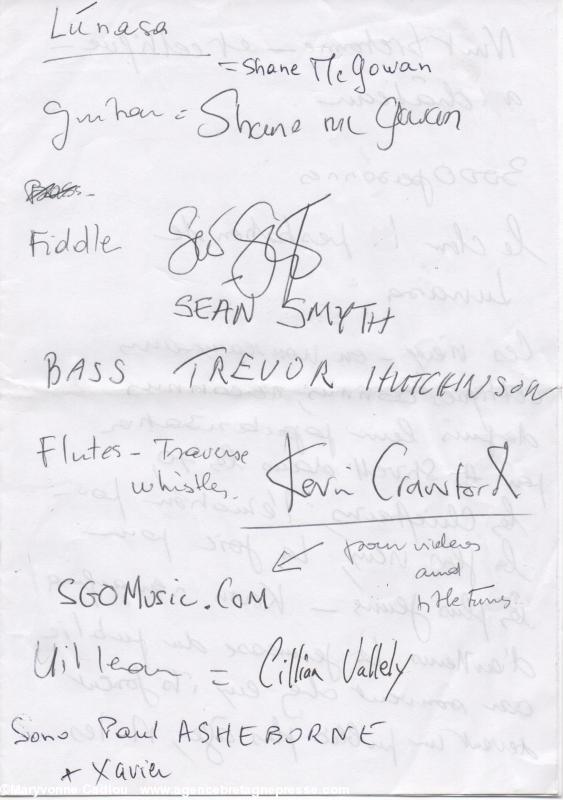 Lúnasa
= Shane McGowan
guitar = Shane Mc Gowan
Bass -
Fiddle
+
SEAN SMYTH
BASS TREVOR HUTCHINSON
Flutes - Traverse
whistles. Kevin Crawford
pour videos
and
title tunes
SGOMusic.COM
Uillean = Cillian Vallely
Sono Paul ASHEBORNE
+ Xavier
©Maryvonne Cadiou www.agencebretagnepresse.com